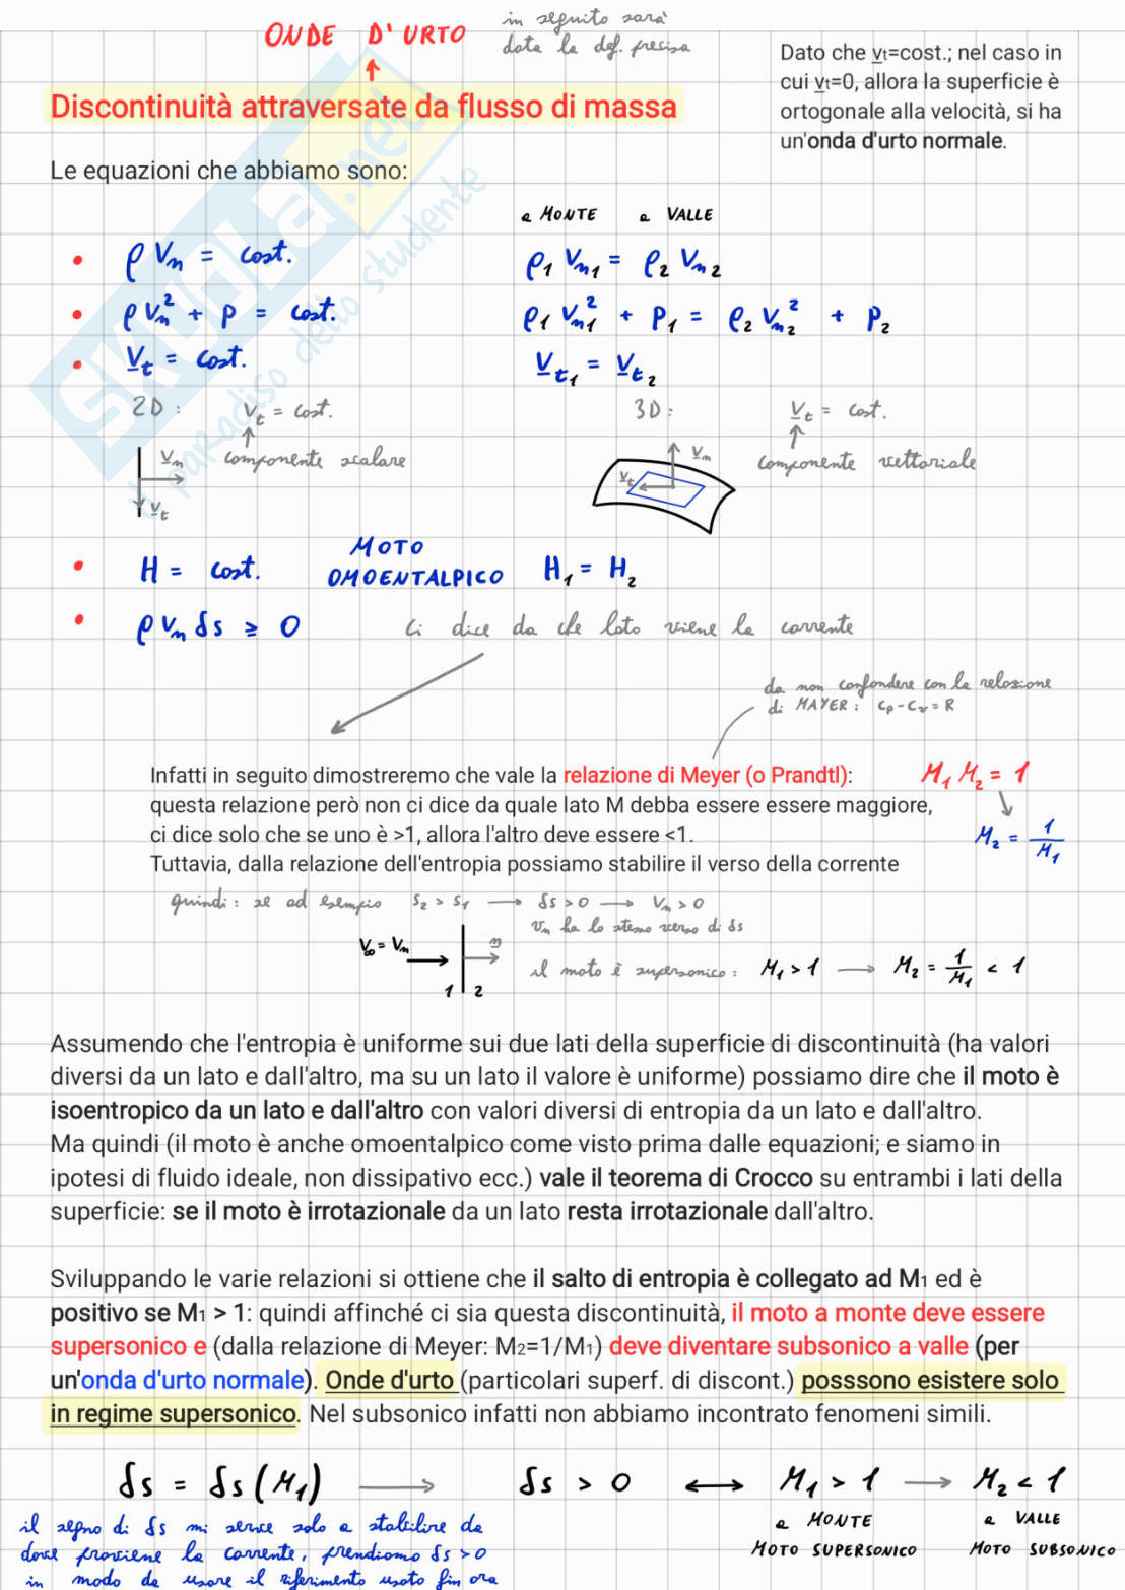 ONDE D'URTO
in seguito sarà
data la def. precisa
Dato che vt=cost.; nel caso in
cui vt=0, allora la superficie è
ortogonale alla velocità, si ha
un'onda d'urto normale.
Discontinuità attraversate da flusso di massa
Le equazioni che abbiamo sono:
a MONTE a VALLE
• ρ Vn = cost. ρ1 Vn1 = ρ2 Vn2
• ρ Vn² + p = cost. ρ1 Vn1² + P1 = ρ2 Vn2² + P2
• Vt = cost. Vt1 = Vt2
2D: Vt = cost. 3D: Vt = cost.
componente scalare componente vettoriale
Vn Vt Vn Vt
• H = cost. MOTO OMOENTALPICO H1 = H2
• ρ Vn δs ≥ 0 Ci dice da che lato viene la corrente
da non confondere con la relazione
di MAYER: cp - cv = R
Infatti in seguito dimostreremo che vale la relazione di Meyer (o Prandtl): M1 M2 = 1
questa relazione però non ci dice da quale lato M debba essere essere maggiore,
ci dice solo che se uno è >1, allora l'altro deve essere <1. M2 = 1/M1
Tuttavia, dalla relazione dell'entropia possiamo stabilire il verso della corrente
quindi: se ad esempio s2 > s1 → δs > 0 → Vn > 0
Vn ha lo stesso verso di δs
V∞ = Vn n
il moto è supersonico: M1 > 1 → M2 = 1/M1 < 1
1 2
Assumendo che l'entropia è uniforme sui due lati della superficie di discontinuità (ha valori
diversi da un lato e dall'altro, ma su un lato il valore è uniforme) possiamo dire che il moto è
isoentropico da un lato e dall'altro con valori diversi di entropia da un lato e dall'altro.
Ma quindi (il moto è anche omoentalpico come visto prima dalle equazioni; e siamo in
ipotesi di fluido ideale, non dissipativo ecc.) vale il teorema di Crocco su entrambi i lati della
superficie: se il moto è irrotazionale da un lato resta irrotazionale dall'altro.
Sviluppando le varie relazioni si ottiene che il salto di entropia è collegato ad M1 ed è
positivo se M1 > 1: quindi affinché ci sia questa discontinuità, il moto a monte deve essere
supersonico e (dalla relazione di Meyer: M2=1/M1) deve diventare subsonico a valle (per
un'onda d'urto normale). Onde d'urto (particolari superf. di discont.) posssono esistere solo
in regime supersonico. Nel subsonico infatti non abbiamo incontrato fenomeni simili.
δs = δs(M1) → δs > 0 ↔ M1 > 1 → M2 < 1
il segno di δs mi serve solo a stabilire da
dove proviene la corrente, prendiamo δs>0
in modo da usare il riferimento usato fin ora
a MONTE a VALLE
MOTO SUPERSONICO MOTO SUBSONICO
SKUOLA.net
il paradiso dello studente